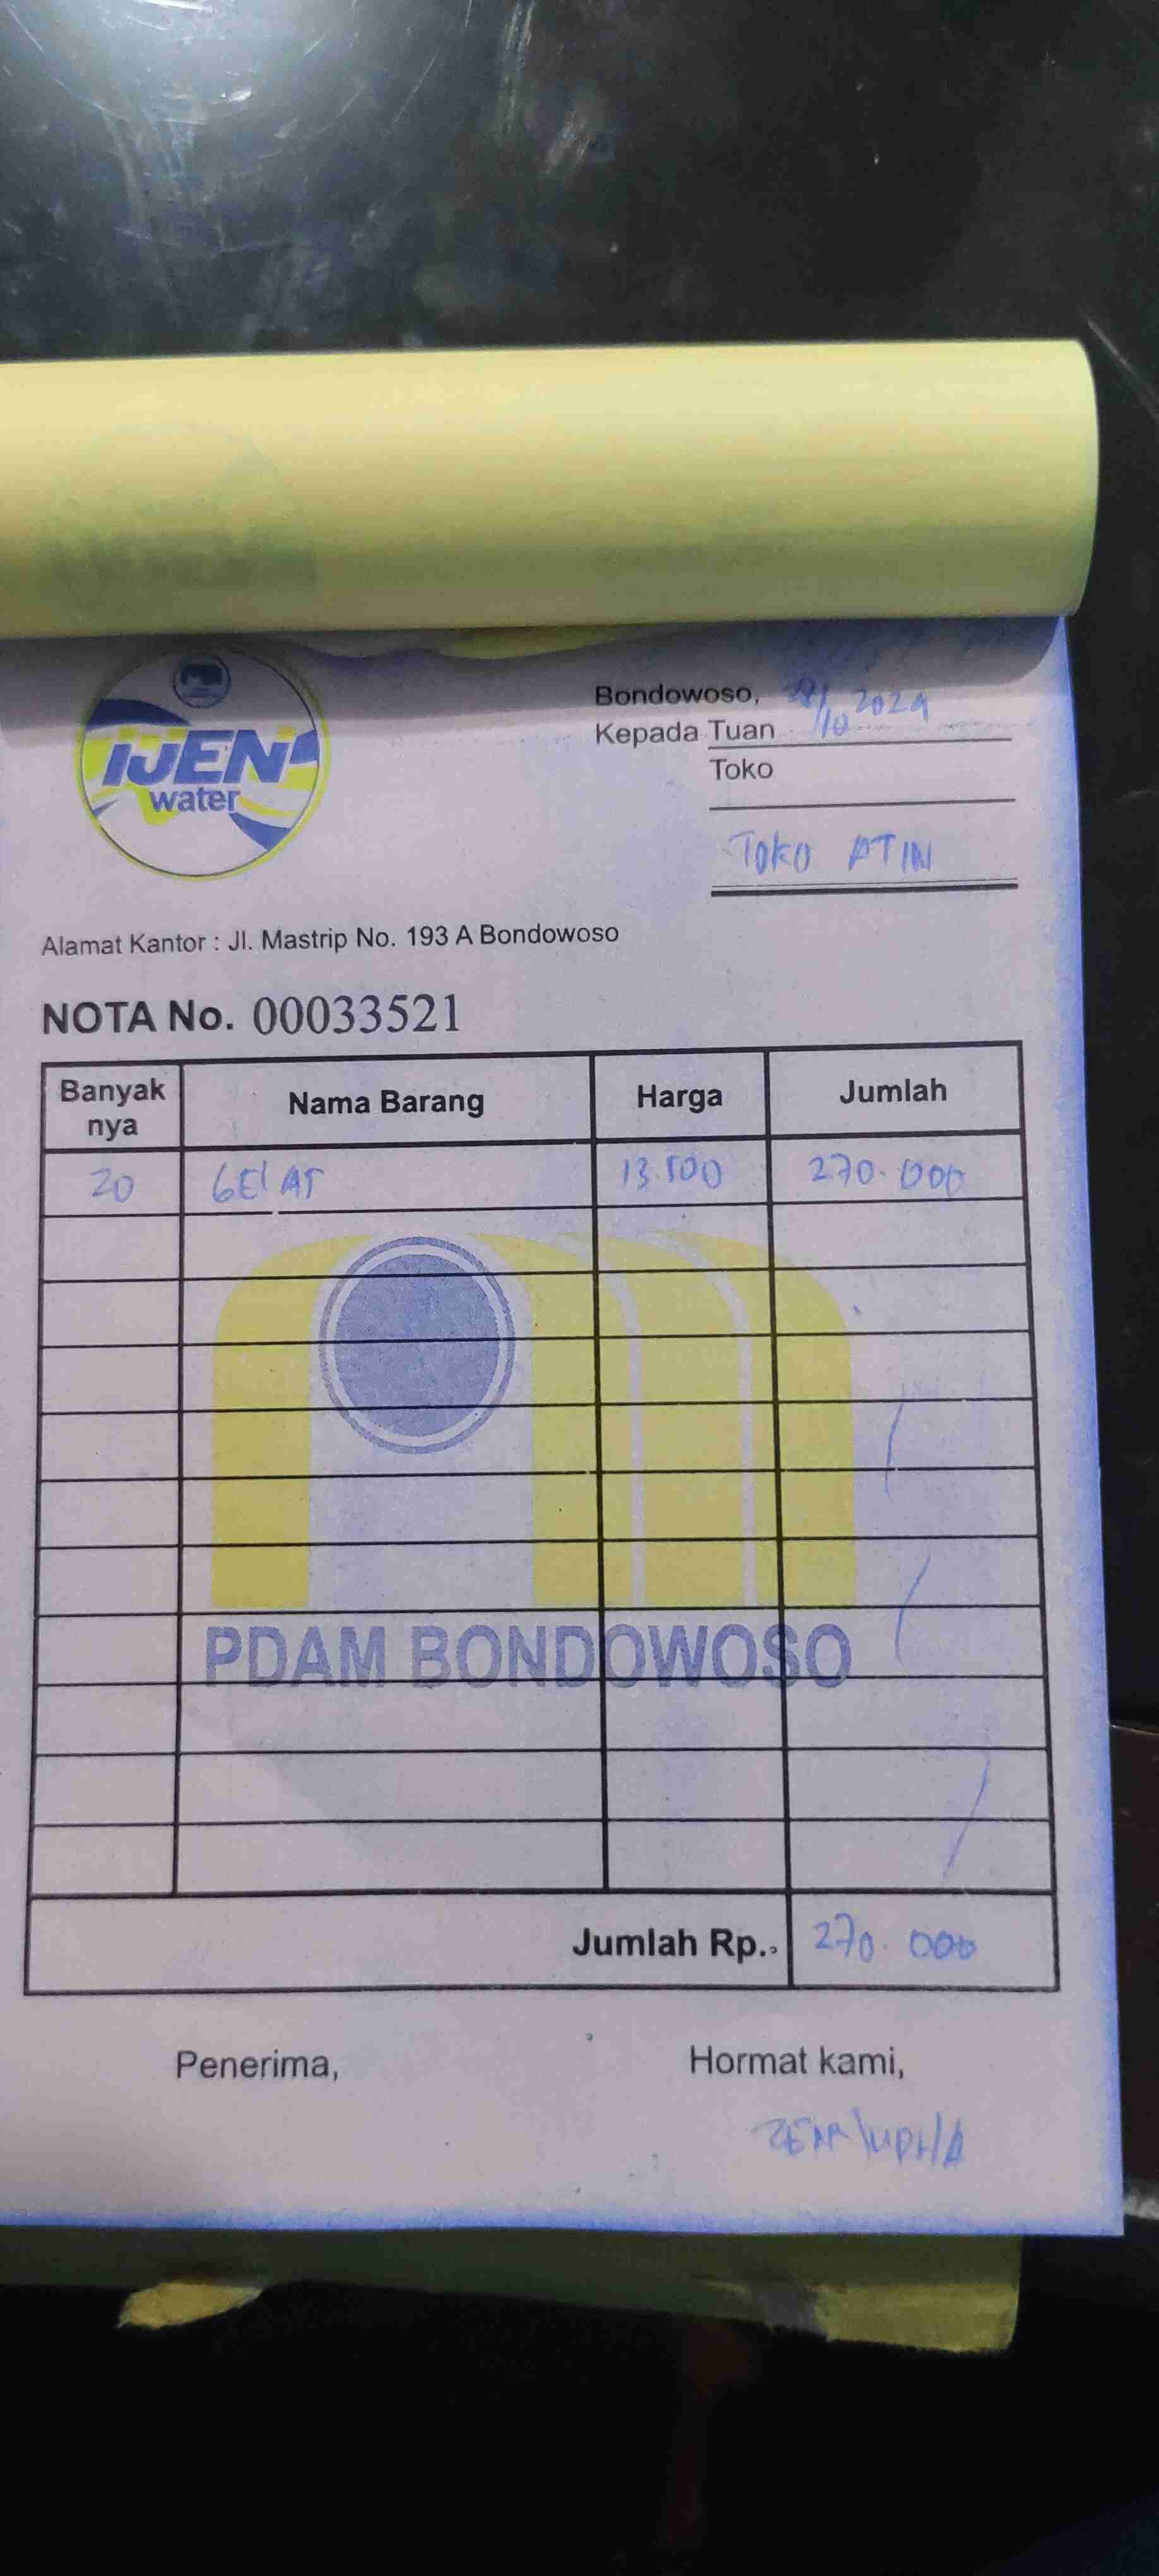 IJEN
water
Bondowoso, 2024
Kepada Tuan
Toko
TOKO ATIN
Alamat Kantor : Jl. Mastrip No. 193 A Bondowoso
NOTA No. 00033521
Banyak nya Nama Barang Harga Jumlah
20 GELAS 13.500 270.000
PDAM BONDOWOSO
Jumlah Rp.. 270.000
Penerima, Hormat kami,